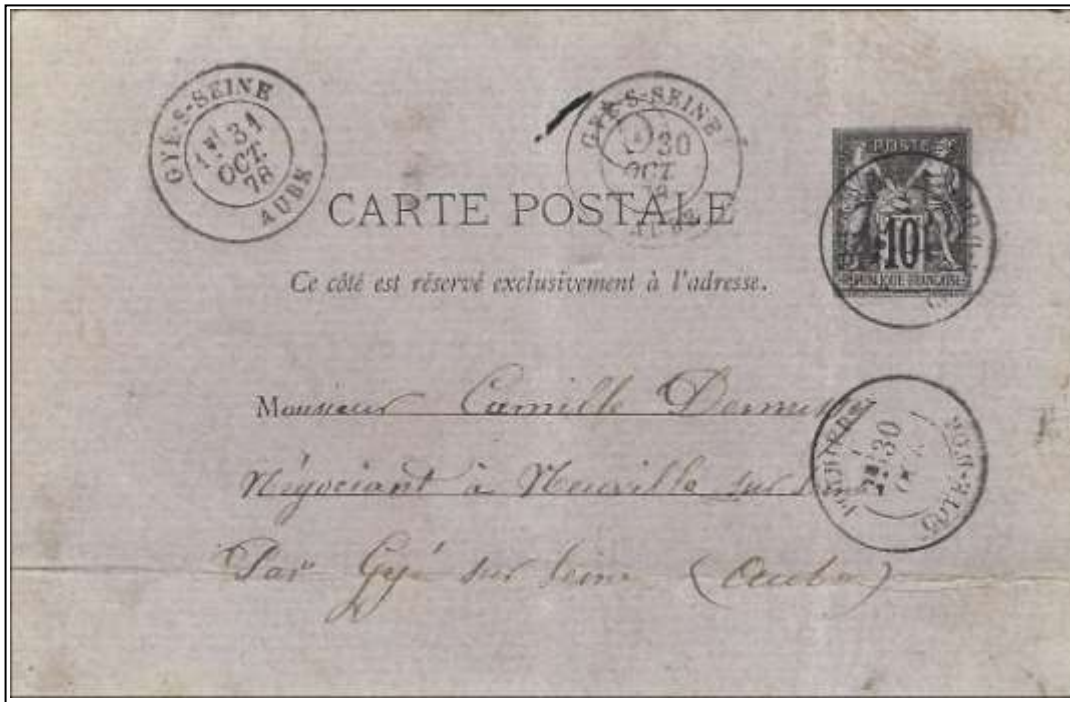 GYÉ-S-SEINE
1E 31
OCT.
78
AUBE
GYÉ-S-SEINE
30
OCT.
78
AUBE
POSTE
10
REPUBLIQUE FRANÇAISE
CARTE POSTALE
Ce côté est réservé exclusivement à l'adresse.
Monsieur Camille
Négociant à Neuville sur
Par Gyé sur Seine (Aube)
30
OCT
CÔTE-D'OR